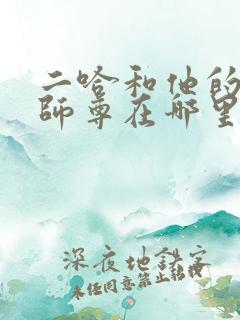 二哈和他的
師尊在哪里
深夜地鐵客
未經同意禁止轉載